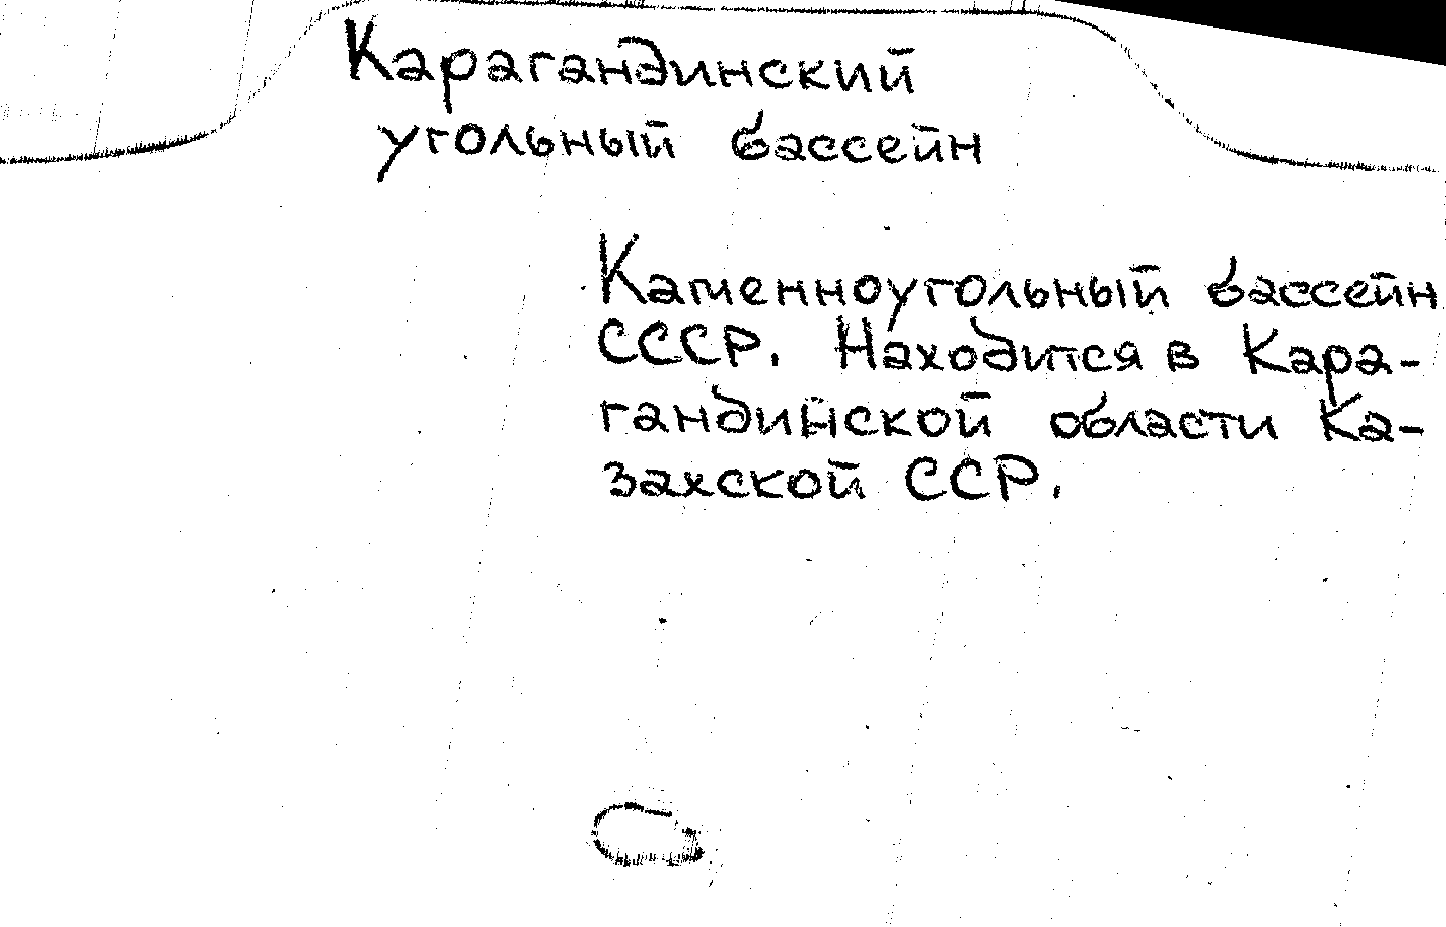 Карагандинский
угольный бассейн
Каменноугольный бассейн
СССР. Находится в Кара-
гандинской области Ка-
захской ССР.